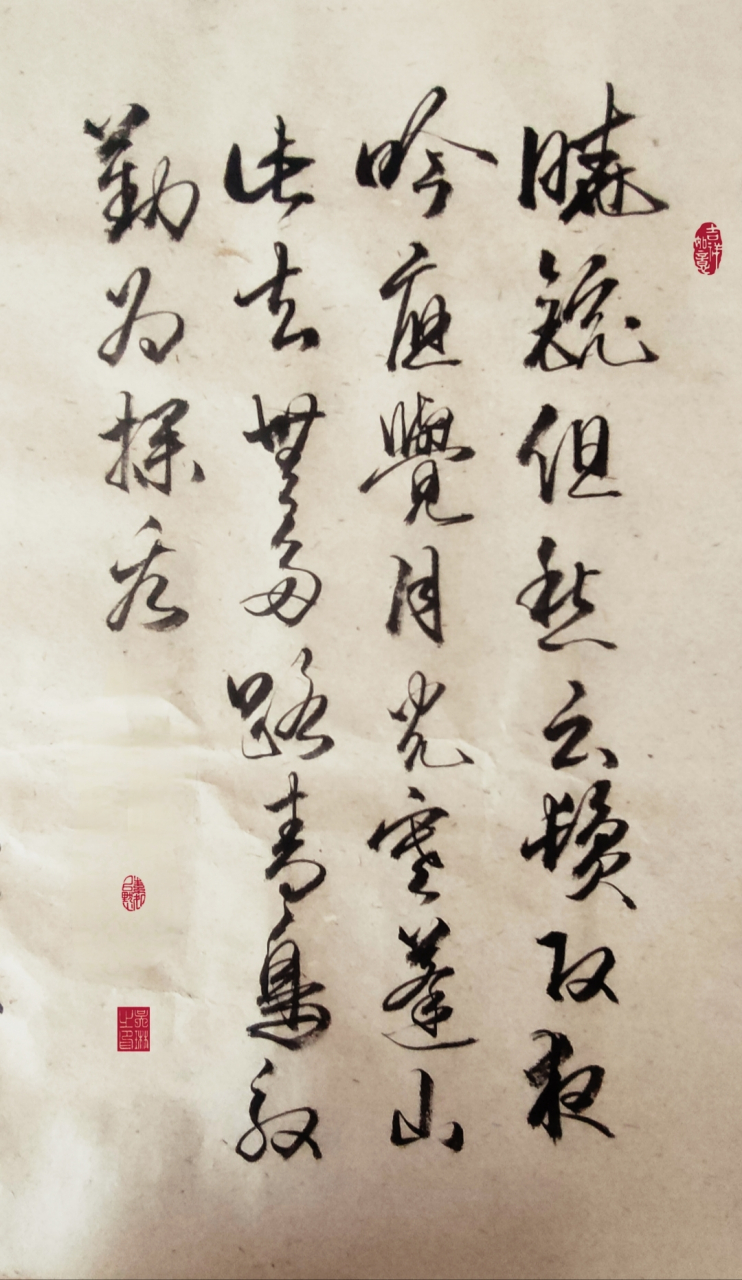 吉祥如意
曉鏡但愁云鬢改夜
吟應覺月光寒蓬山
此去無多路青鳥殷
勤为探看